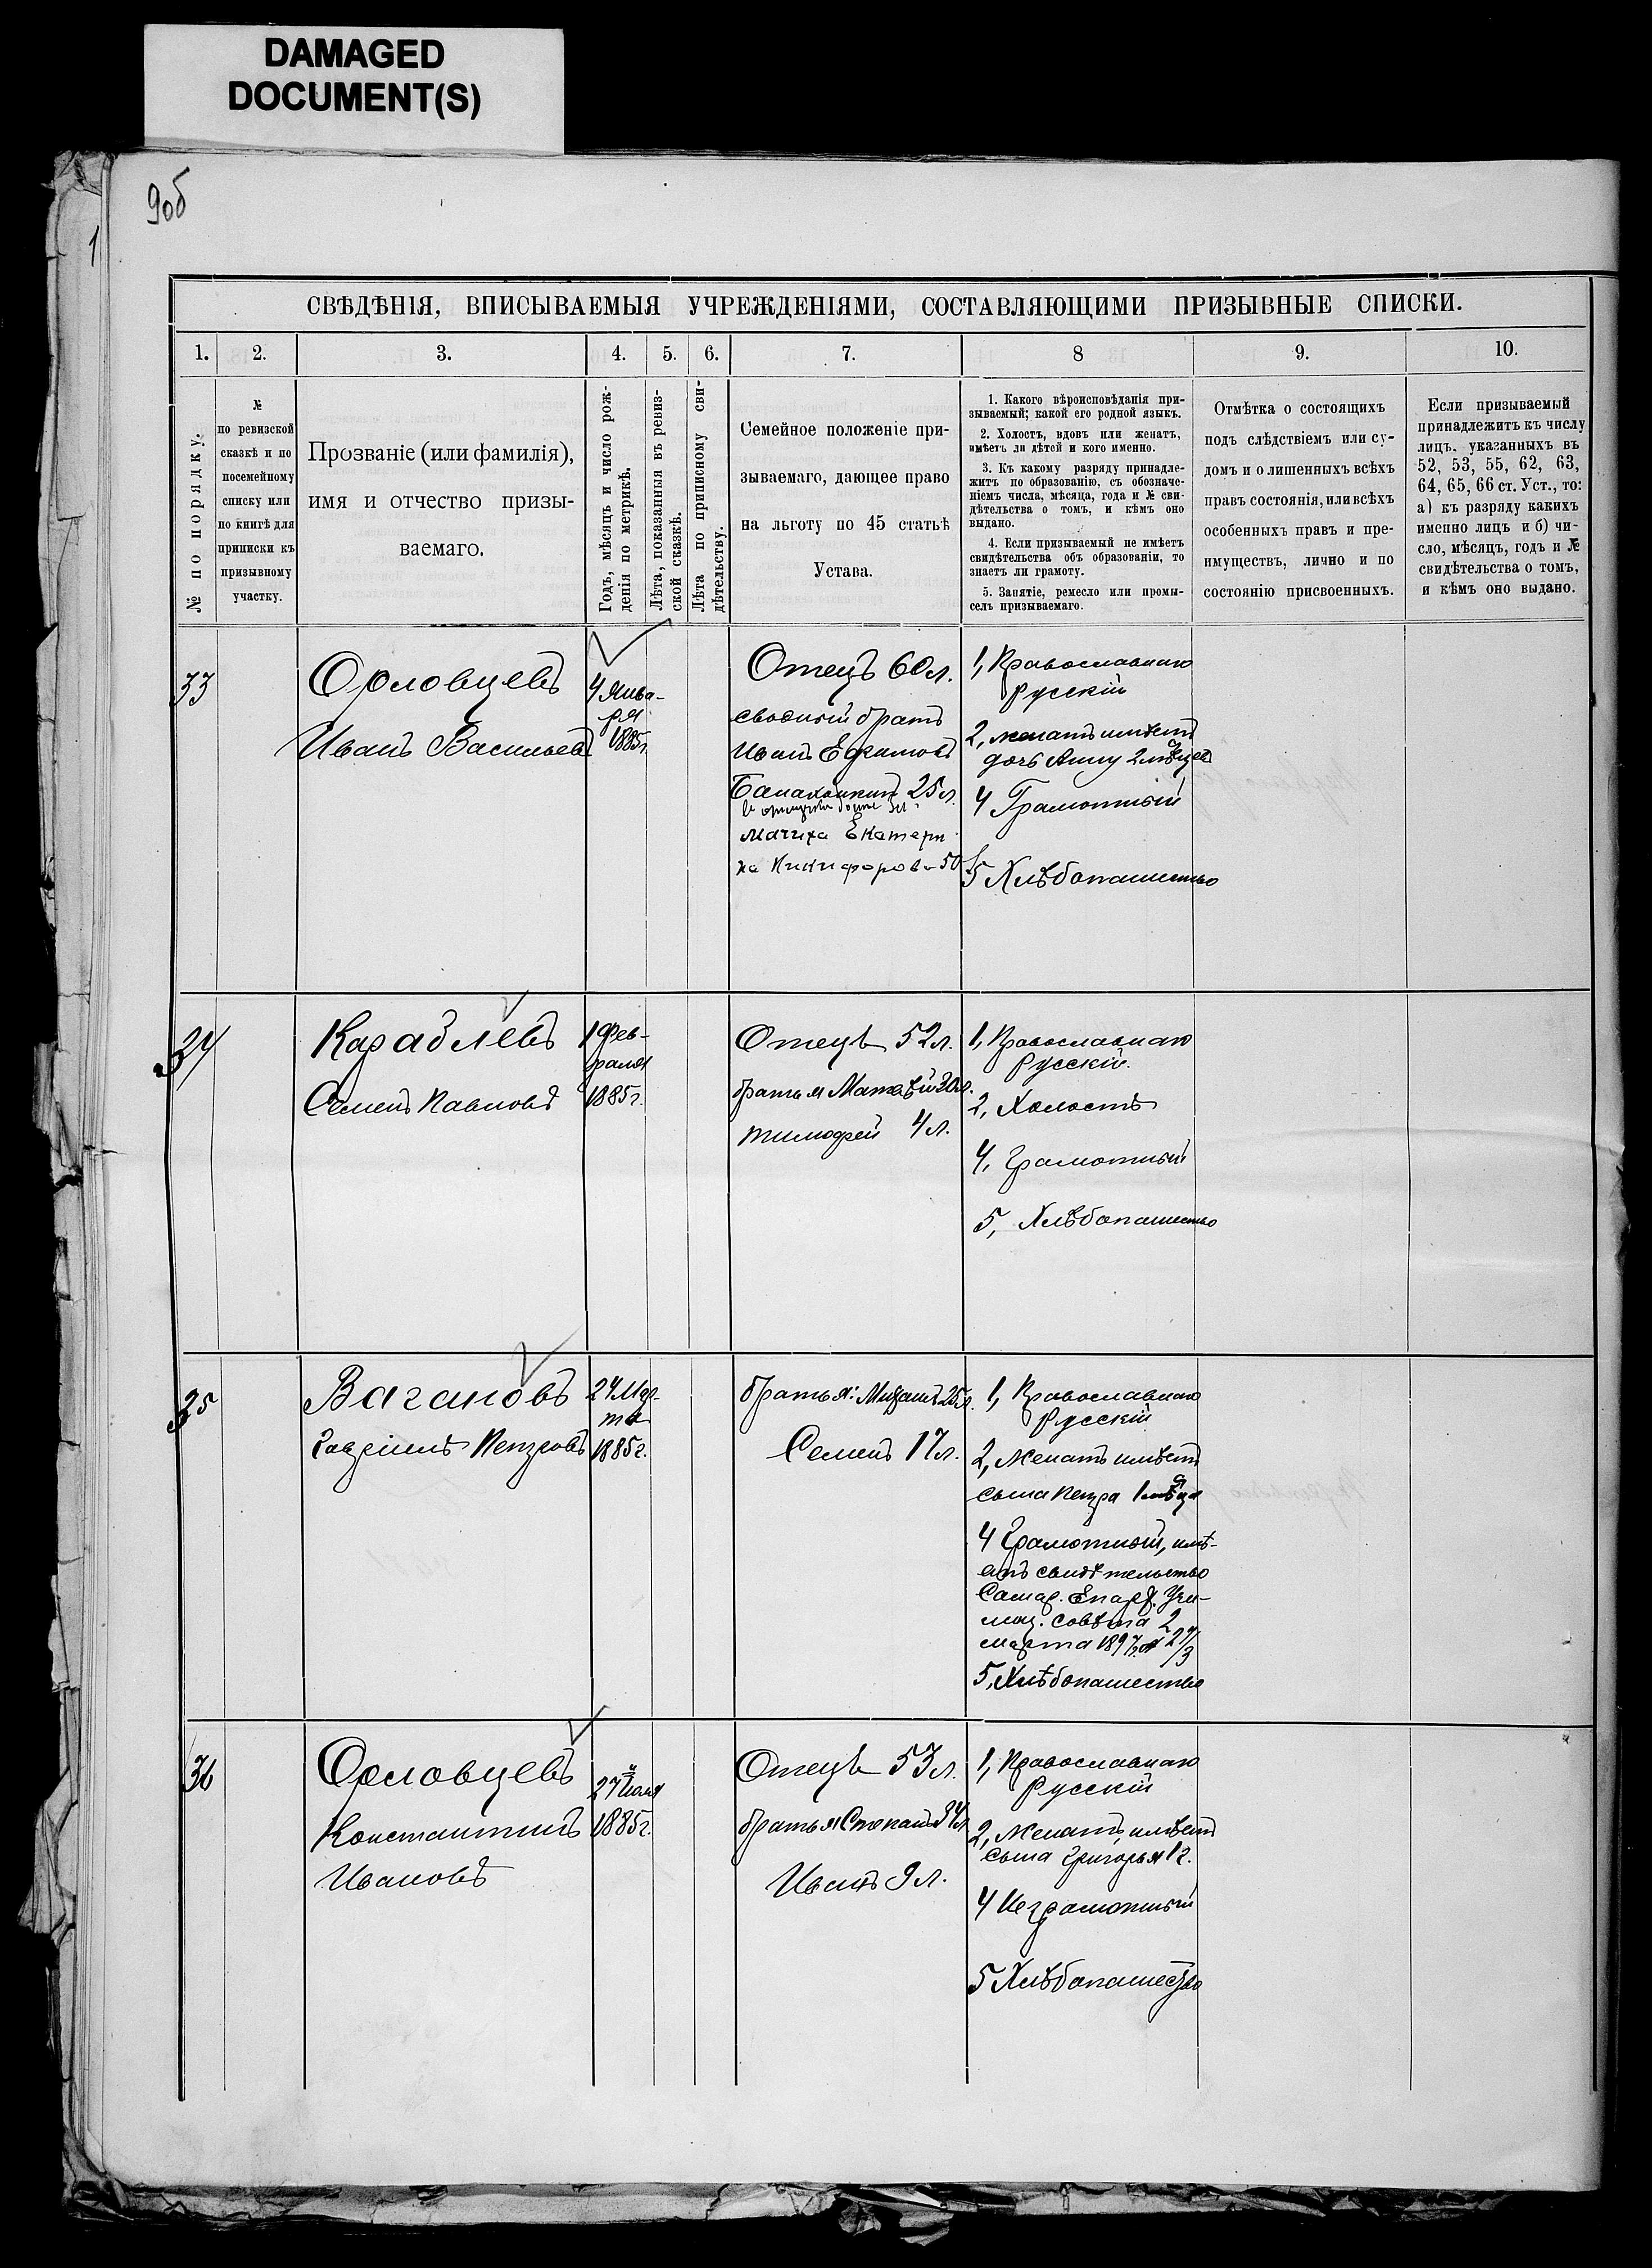 DAMAGED
DOCUMENT(S)
9об
1
СВѢДѢНІЯ, ВПИСЫВАЕМЫЯ УЧРЕЖДЕНІЯМИ, СОСТАВЛЯЮЩИМИ ПРИЗЫВНЫЕ СПИСКИ.
1.
2.
3.
4.
5.
6.
7.
8
9.
10.
№ по порядку.
№
по ревизской
сказкѣ и по
посемейному
списку или
по книгѣ для
приписки къ
призывному
участку.
Прозваніе (или фамилія),
имя и отчество призы-
ваемаго.
Годъ, мѣсяцъ и число рож-
денія по метрикѣ.
Лѣта, показанныя въ ревиз-
ской сказкѣ.
Лѣта по приписному сви-
дѣтельству.
Семейное положеніе при-
зываемаго, дающее право
на льготу по 45 статьѣ
Устава.
1. Какого вѣроисповѣданія при-
зываемый; какой его родной языкъ.
2. Холостъ, вдовъ или женатъ,
имѣетъ ли дѣтей и кого именно.
3. Къ какому разряду принадле-
житъ по образованію, съ обозначе-
ніемъ числа, мѣсяца, года и № сви-
дѣтельства о томъ, и кѣмъ оно
выдано.
4. Если призываемый не имѣетъ
свидѣтельства объ образованіи, то
знаетъ ли грамоту.
5. Занятіе, ремесло или промы-
селъ призываемаго.
Отмѣтка о состоящихъ
подъ слѣдствіемъ или су-
домъ и о лишенныхъ всѣхъ
правъ состоянія, или всѣхъ
особенныхъ правъ и пре-
имуществъ, лично и по
состоянію присвоенныхъ.
Если призываемый
принадлежитъ къ числу
лицъ. указанныхъ въ
52, 53, 55, 62, 63,
64, 65, 66 ст. Уст., то:
а) къ разряду какихъ
именно лицъ и б) чи-
сло, мѣсяцъ, годъ и №
свидѣтельства о томъ,
и кѣмъ оно выдано.
33
Орловцевъ
Иванъ Васильевъ
4 Янва-
ря
1885г.
Отецъ 60 л.
сводный братъ
Иванъ Ефимовъ
25 л.
Мачиха Екатери
на Никифорова 50
1, Православнаго
русскій
2, женатъ имѣетъ
дочь Анну 2 мѣсяцев
4 Грамотный
5 Хлѣбопашество
34
Караблевъ
Семенъ Павловъ
1 Фев-
раля
1885г.
Отецъ 52 л.
братья Матвѣй 20 л.
тимофей 4 л.
1, Православнаго
русскій.
2, Холостъ
4, грамотный
5, Хлѣбопашество
35
Вагановъ
Гавріилъ Петровъ
24 Мар-
та
1885г.
братья: 25 л.
Семенъ 17 л.
1, Православнаго
русскій
2, Женатъ имѣетъ
сына Петра 1 мѣсяца
4 Грамотный, имѣ-
етъ свидѣтельство
Самар. Епарх. Учи-
лищ. совѣта 2
марта 1897г. №
5, Хлѣбопашество
36
Орловцевъ
Константинъ
Ивановъ
27 Іюля
1885г.
Отецъ 53 л.
братья Степанъ
Иванъ 9 л.
1, Православнаго
русскій
2, Женатъ, имѣетъ
сына Григорья 1 г.
4 Неграмотный
5 Хлѣбопашество